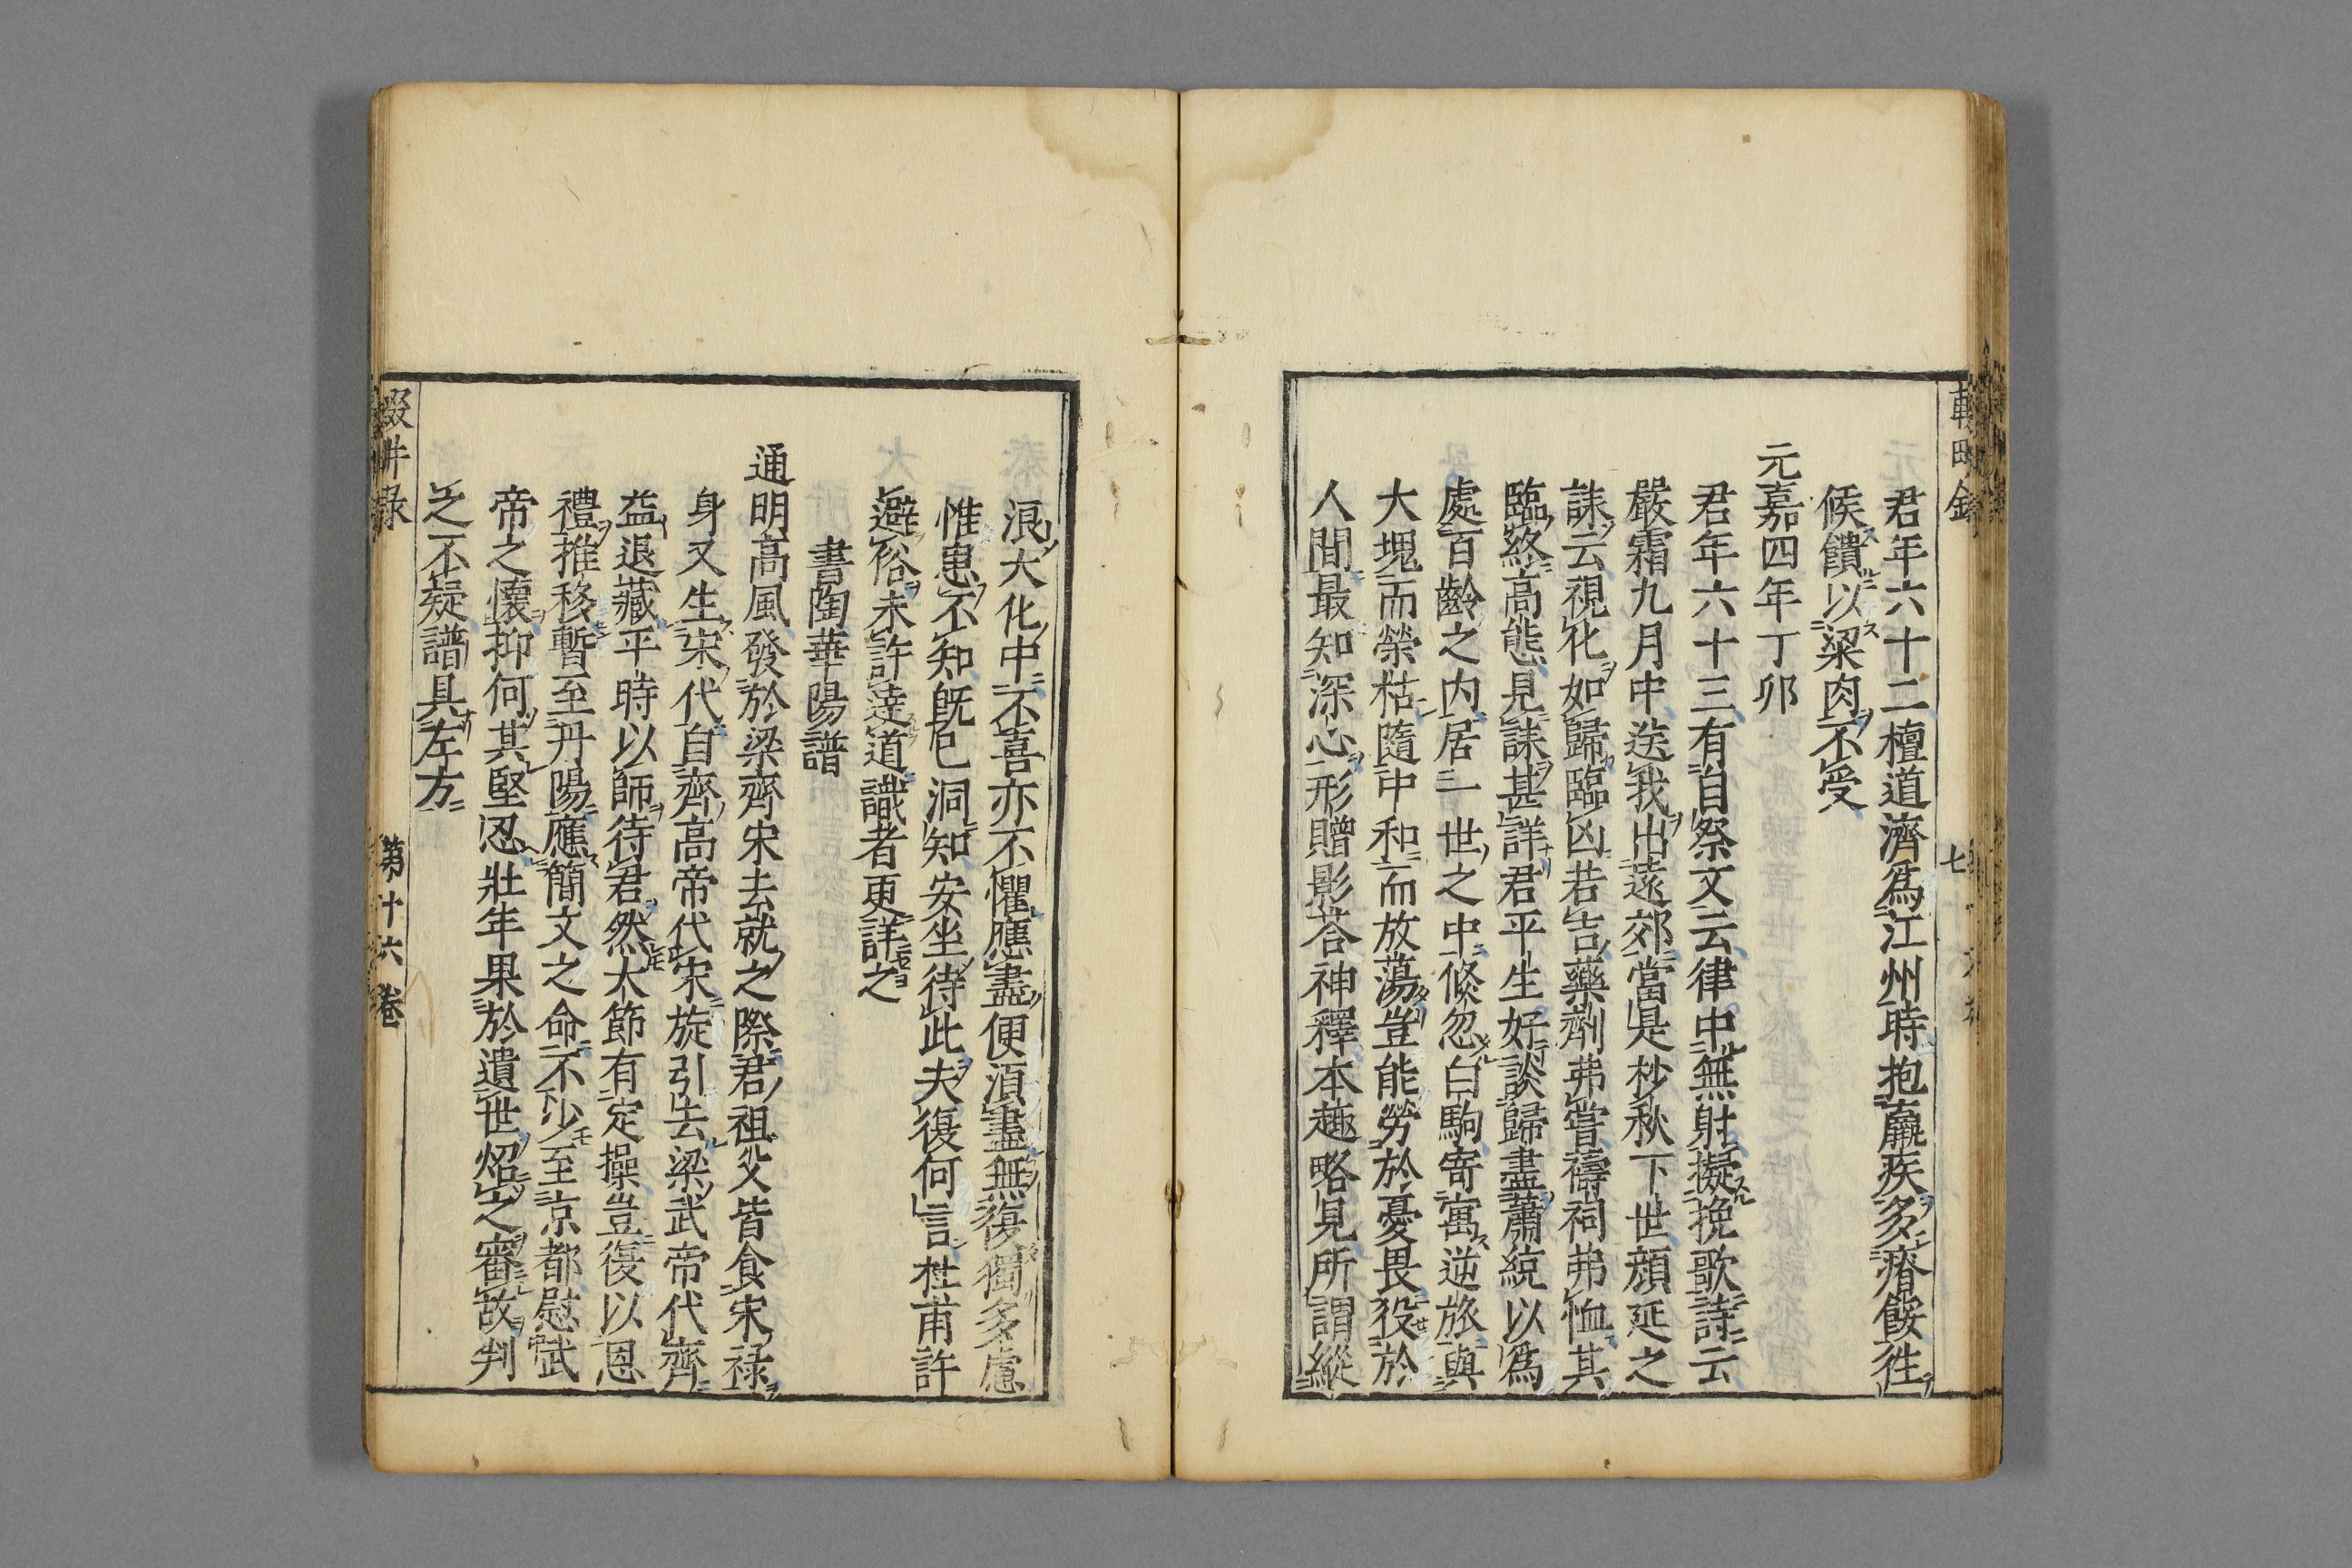 君年六十二檀道濟爲江州時抱羸疾多瘠餒徃
候饋以粱肉不受
元嘉四年丁卯
君年六十三有自祭文云律中無射擬挽歌詩云
嚴霜九月中送我出遠郊當是杪秋下世顔延之
誄云視化如歸臨凶若吉藥劑弗嘗禱祠弗恤其
臨終高態見誄甚詳君平生好談歸盡蕭統以爲
處百齡之内居一世之中倐忽白駒寄寓逆旅與
大塊而榮枯隨中和而放蕩豈能勞於憂畏役於
人間最知深心形贈影荅神釋本趣略見所謂縱
七
浪大化中不喜亦不懼應盡便湏盡無復獨多慮
惟患不知旣巳洞知安坐待此夫復何言杜甫許
避俗未許達道識者更詳之
書陶華陽譜
通明高風發於梁齊宋去就之際君祖父皆食宋禄
身又生宋代自齊高帝代宋旋引去梁武帝代齊
益退藏平時以師待君然大節有定操豈復以恩
禮推移暫至丹陽應簡文之命不少至京都慰武
帝之懷抑何其堅忍壯年果於遺世炤之審故判
之不疑譜具左方
輟畊录
第十六巻